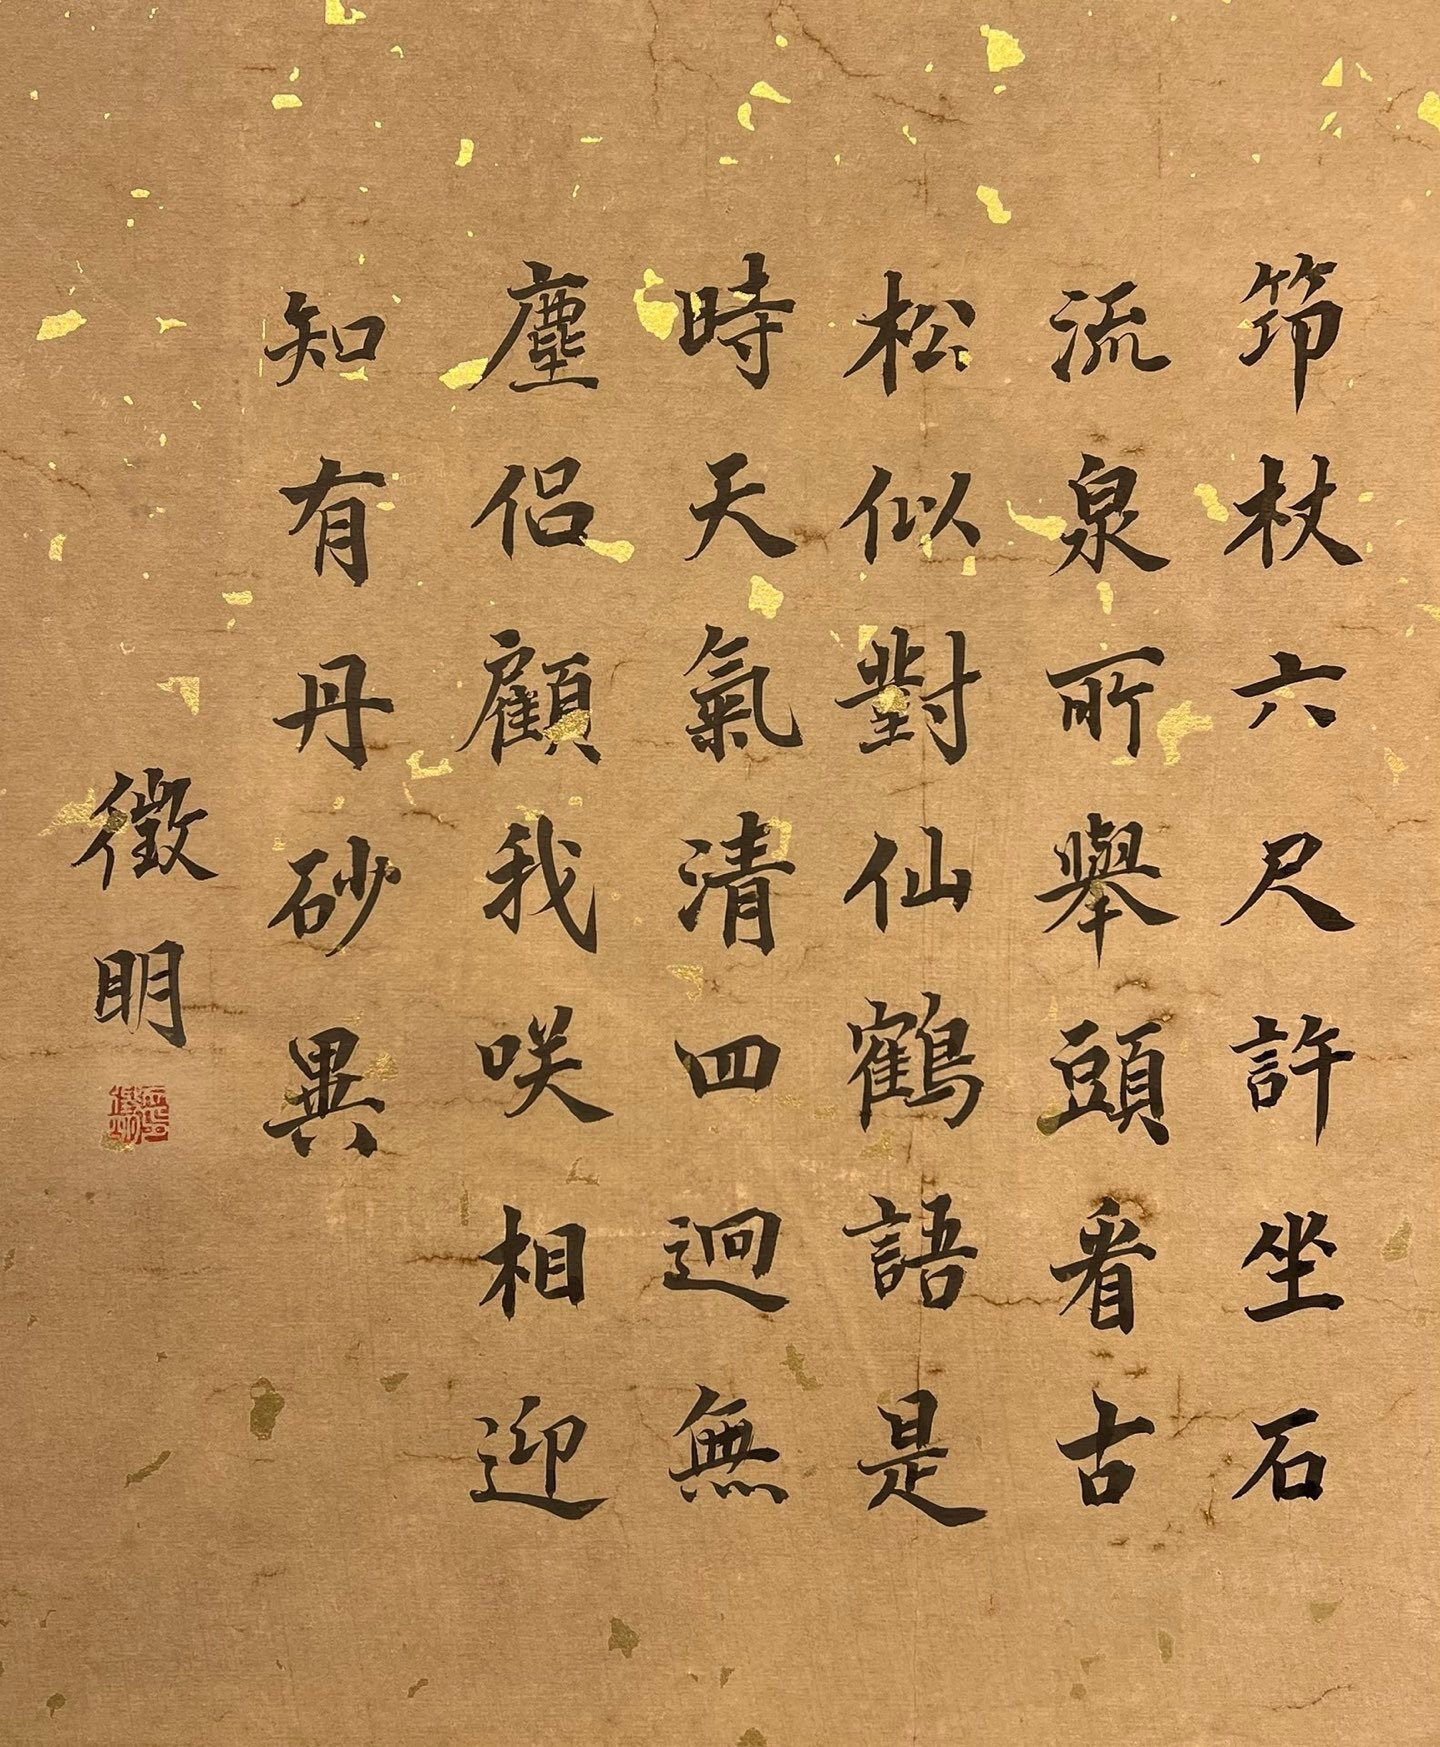 筇杖六尺許坐石
流泉所舉頭看古
松似對仙鶴語是
時天氣清四迥無
塵侣顧我咲相迎
知有丹砂異
徵明